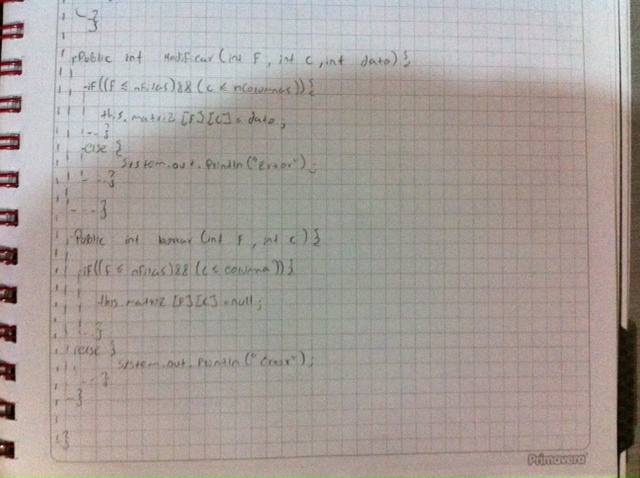 }
}
Public int Modificar (int F, int c, int data) {
if ((F ≤ nFilas) && (c ≤ ncolumnas)) {
this.matriz [F][c] = data;
}
else {
System.out.println ("Error");
}
}
Public int borrar (int F, int c) {
if ((F ≤ nFilas) && (c ≤ columna)) {
this.matriz [F][c] = null;
}
else {
System.out.println ("Error");
}
}
}
Primavera